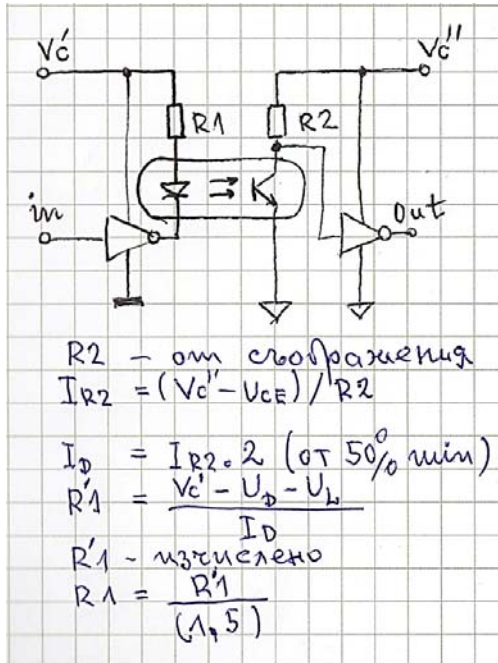 Vc' Vc''
R1 R2
in Out
R2 - от съображения
I_R2 = (Vc'' - U_CE) / R2
I_D = I_R2 . 2 (от 50% min)
R'1 = (Vc' - U_D - U_L) / I_D
R'1 - изчислено
R1 = R'1 / (1,5)